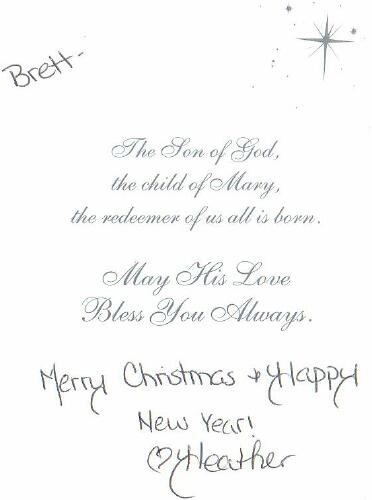 Brett-
The Son of God,
the child of Mary,
the redeemer of us all is born.
May His Love
Bless You Always.
Merry Christmas + Happy
New Year!
♡ Heather